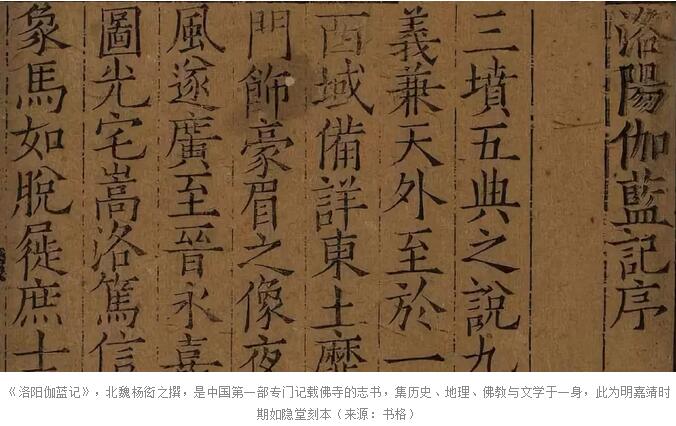 洛陽伽藍記序
三墳五典之說九
義兼天外至於一
西域備詳東土靡
門飾豪眉之像夜
風遂廣至晉永嘉
圖光宅嵩洛篤信
象馬如脫屣庶士
《洛阳伽蓝记》，北魏杨衒之撰，是中国第一部专门记载佛寺的志书，集历史、地理、佛教与文学于一身，此为明嘉靖时
期如隐堂刻本（来源：书格）